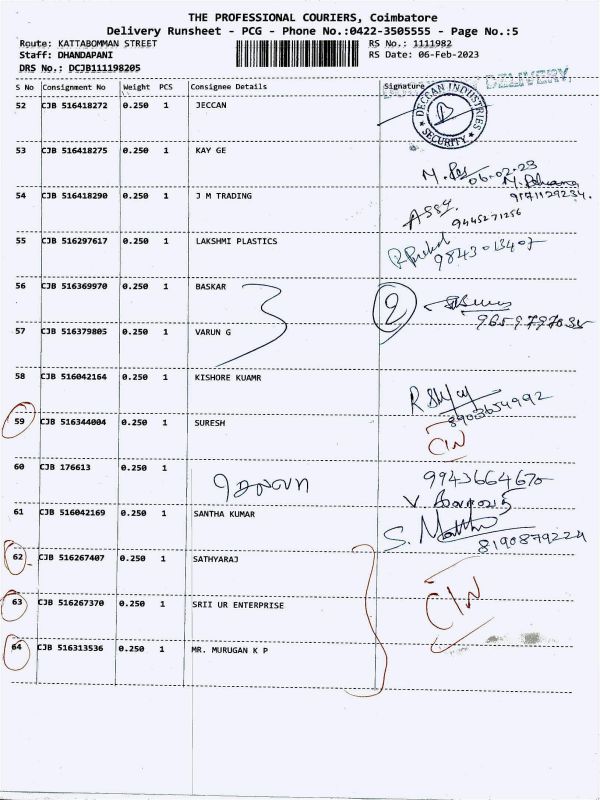 THE PROFESSIONAL COURIERS, Coimbatore
Delivery Runsheet - PCG - Phone No.:0422-3505555 - Page No.:5
Route: KATTABOMMAN STREET RS No.: 1111982
Staff: DHANDAPANI RS Date: 06-Feb-2023
DRS No.: DCJB111198205
DELIVERY
S No Consignment No Weight PCS Consignee Details Signature
52 CJB 516418272 0.250 1 JECCAN
DECCAN INDUSTRIES
SECURITY
53 CJB 516418275 0.250 1 KAY GE
06.02.23
54 CJB 516418290 0.250 1 J M TRADING
9445271256
55 CJB 516297617 0.250 1 LAKSHMI PLASTICS
9843013407
56 CJB 516369970 0.250 1 BASKAR
2
57 CJB 516379805 0.250 1 VARUN G
58 CJB 516042164 0.250 1 KISHORE KUAMR
8903654992
59 CJB 516344004 0.250 1 SURESH
CIN
60 CJB 176613 0.250 1 9943664670
61 CJB 516042169 0.250 1 SANTHA KUMAR
62 CJB 516267407 0.250 1 SATHYARAJ
63 CJB 516267370 0.250 1 SRII UR ENTERPRISE
CIN
64 CJB 516313536 0.250 1 MR. MURUGAN K P